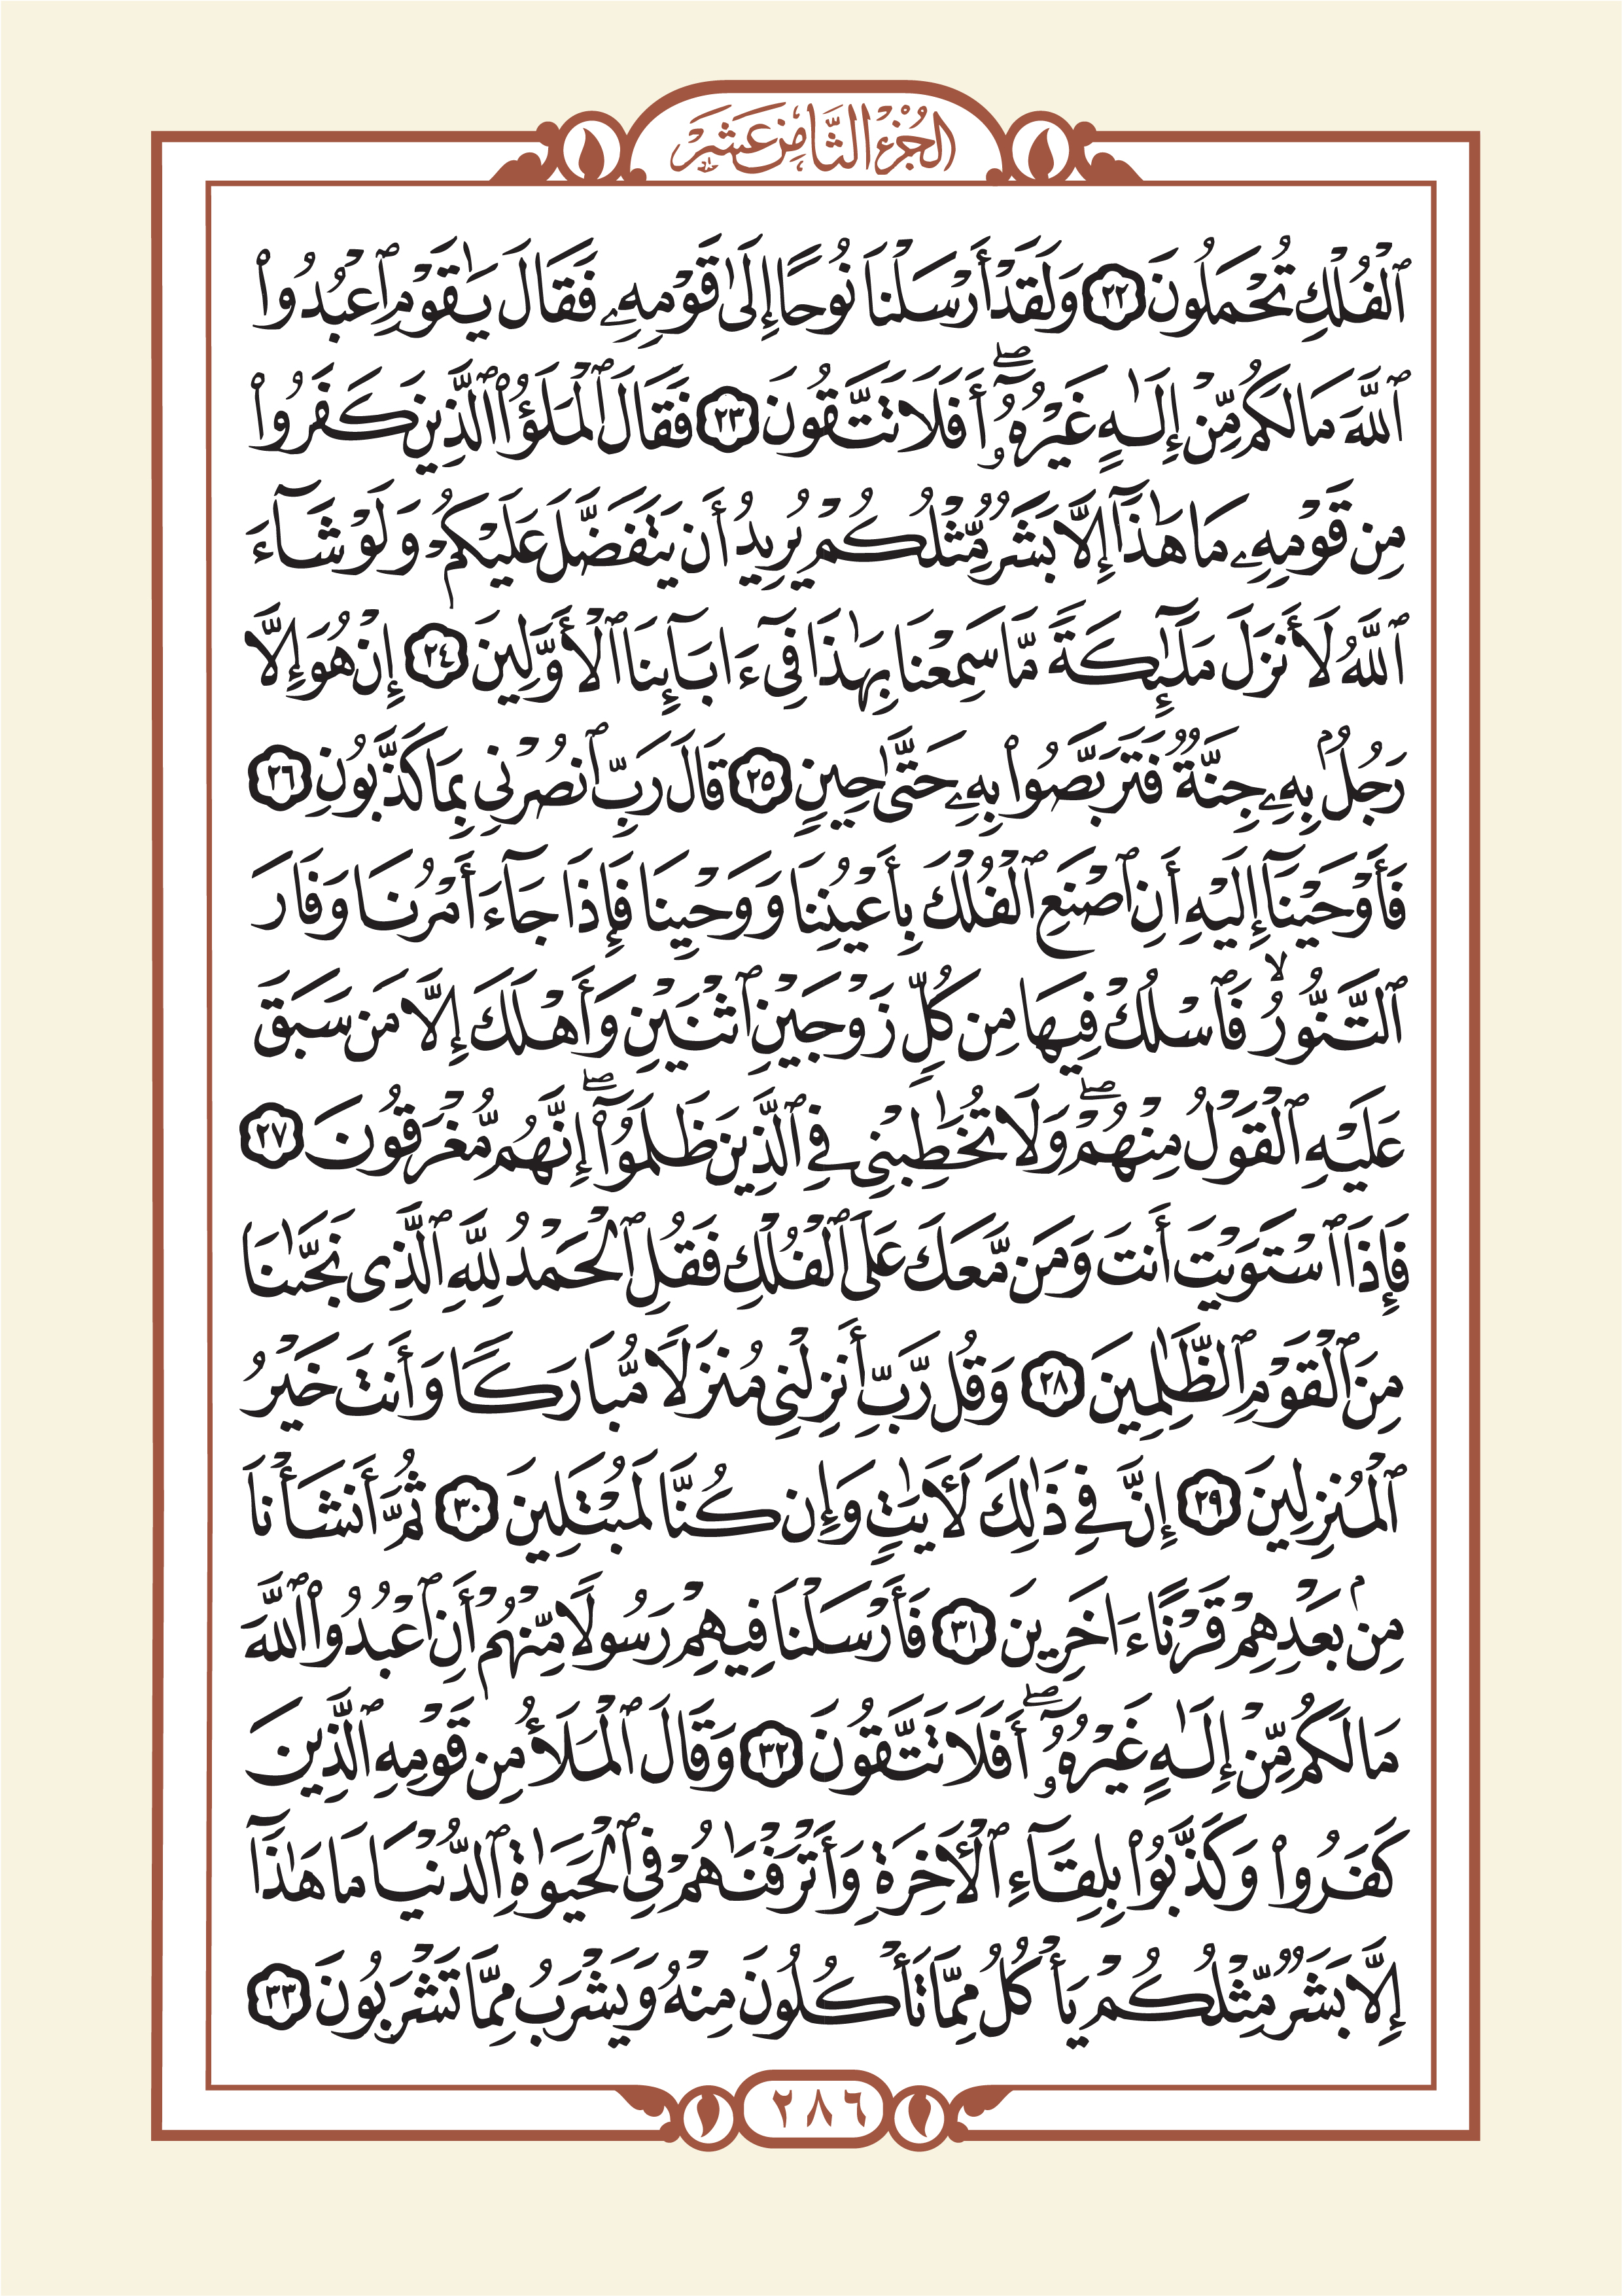 الجزء الثامن عشر
ٱلْفُلْكِ تُحْمَلُونَ ٢٢ وَلَقَدْ أَرْسَلْنَا نُوحًا إِلَىٰ قَوْمِهِۦ فَقَالَ يَـٰقَوْمِ ٱعْبُدُوا۟
ٱللَّهَ مَا لَكُم مِّنْ إِلَـٰهٍ غَيْرُهُۥٓ ۖ أَفَلَا تَتَّقُونَ ٢٣ فَقَالَ ٱلْمَلَؤُا۟ ٱلَّذِينَ كَفَرُوا۟
مِن قَوْمِهِۦ مَا هَـٰذَآ إِلَّا بَشَرٌ مِّثْلُكُمْ يُرِيدُ أَن يَتَفَضَّلَ عَلَيْكُمْ وَلَوْ شَآءَ
ٱللَّهُ لَأَنزَلَ مَلَـٰٓئِكَةً مَّا سَمِعْنَا بِهَـٰذَا فِىٓ ءَابَآئِنَا ٱلْأَوَّلِينَ ٢٤ إِنْ هُوَ إِلَّا
رَجُلٌۢ بِهِۦ جِنَّةٌ فَتَرَبَّصُوا۟ بِهِۦ حَتَّىٰ حِينٍ ٢٥ قَالَ رَبِّ ٱنصُرْنِى بِمَا كَذَّبُونِ ٢٦
فَأَوْحَيْنَآ إِلَيْهِ أَنِ ٱصْنَعِ ٱلْفُلْكَ بِأَعْيُنِنَا وَوَحْيِنَا فَإِذَا جَآءَ أَمْرُنَا وَفَارَ
ٱلتَّنُّورُ ۙ فَٱسْلُكْ فِيهَا مِن كُلٍّ زَوْجَيْنِ ٱثْنَيْنِ وَأَهْلَكَ إِلَّا مَن سَبَقَ
عَلَيْهِ ٱلْقَوْلُ مِنْهُمْ ۖ وَلَا تُخَـٰطِبْنِى فِى ٱلَّذِينَ ظَلَمُوٓا۟ ۖ إِنَّهُم مُّغْرَقُونَ ٢٧
فَإِذَا ٱسْتَوَيْتَ أَنتَ وَمَن مَّعَكَ عَلَى ٱلْفُلْكِ فَقُلِ ٱلْحَمْدُ لِلَّهِ ٱلَّذِى نَجَّىٰنَا
مِنَ ٱلْقَوْمِ ٱلظَّـٰلِمِينَ ٢٨ وَقُل رَّبِّ أَنزِلْنِى مُنزَلًا مُّبَارَكًا وَأَنتَ خَيْرُ
ٱلْمُنزِلِينَ ٢٩ إِنَّ فِى ذَٰلِكَ لَـَٔايَـٰتٍ وَإِن كُنَّا لَمُبْتَلِينَ ٣٠ ثُمَّ أَنشَأْنَا
مِنۢ بَعْدِهِمْ قَرْنًا ءَاخَرِينَ ٣١ فَأَرْسَلْنَا فِيهِمْ رَسُولًا مِّنْهُمْ أَنِ ٱعْبُدُوا۟ ٱللَّهَ
مَا لَكُم مِّنْ إِلَـٰهٍ غَيْرُهُۥٓ ۖ أَفَلَا تَتَّقُونَ ٣٢ وَقَالَ ٱلْمَلَأُ مِن قَوْمِهِ ٱلَّذِينَ
كَفَرُوا۟ وَكَذَّبُوا۟ بِلِقَآءِ ٱلْـَٔاخِرَةِ وَأَتْرَفْنَـٰهُمْ فِى ٱلْحَيَوٰةِ ٱلدُّنْيَا مَا هَـٰذَآ
إِلَّا بَشَرٌ مِّثْلُكُمْ يَأْكُلُ مِمَّا تَأْكُلُونَ مِنْهُ وَيَشْرَبُ مِمَّا تَشْرَبُونَ ٣٣
٢٨٦